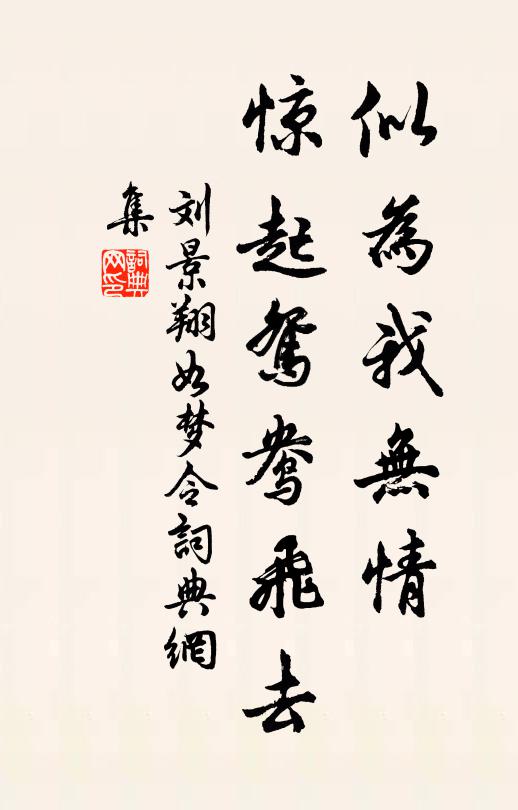 似為我無情
惊起鸳鸯飛去
刘景翔如梦令詞典網
集
詞典
网印